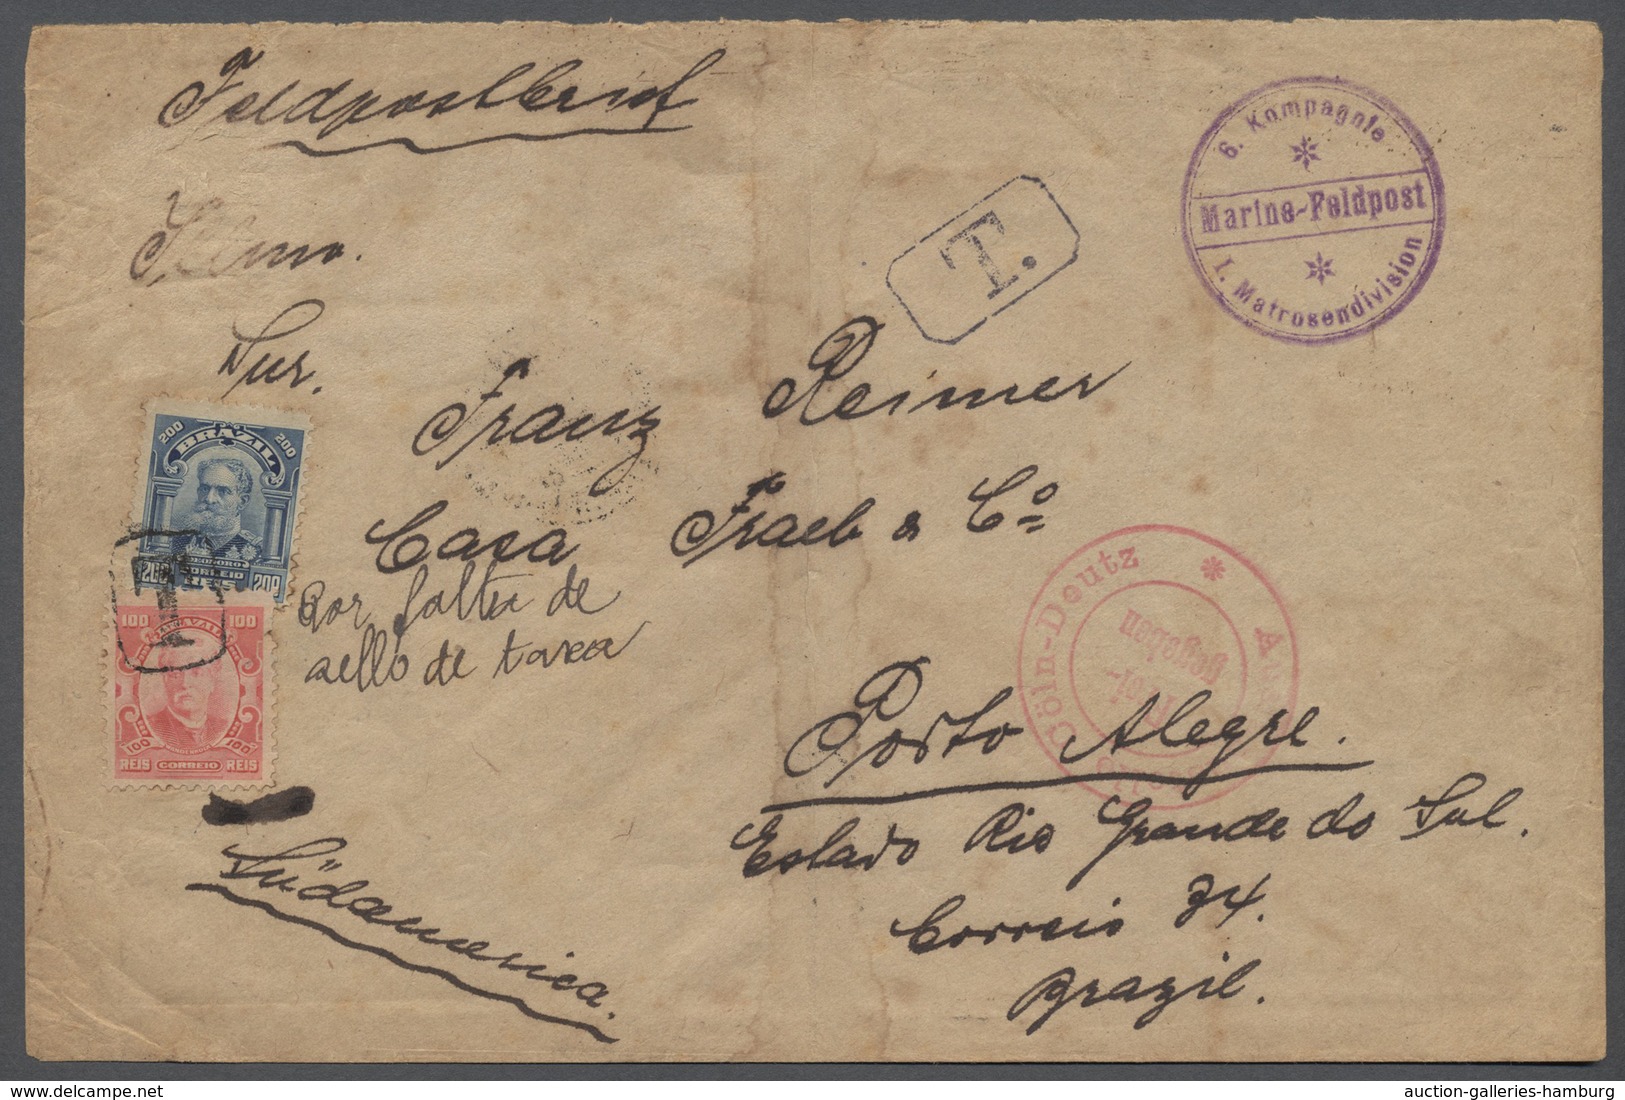 Feldpostbrief
6. Kompagnie
Marine-Feldpost
I. Matrosendivision
Illmo.
T.
Snr.
Franz Reimer
200 BRAZIL 200
Casa Fraeb & Cº
DEODORO
200 CORREIO 200
REIS
T
Por falta de
sello de taxa
100 100
Cöln-Deutz
gegeben
Frei-
Porto Alegre.
100 100
REIS CORREIO REIS
Estado Rio Grande do Sul.
Südamerica.
Correio 34.
Brazil.
auction-galleries-hamburg